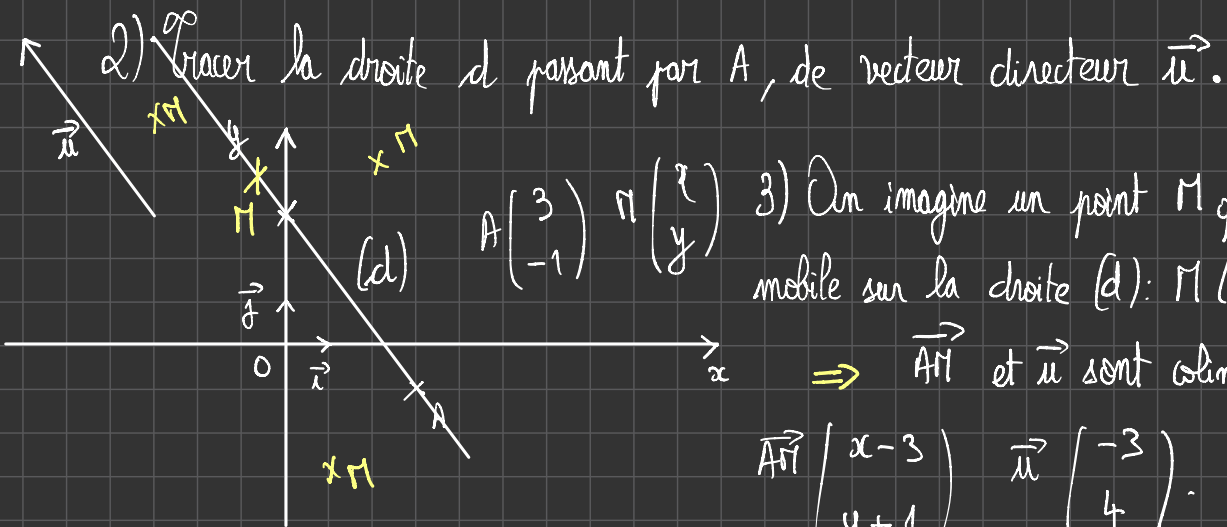 2) Tracer la droite d passant par A, de vecteur directeur u⃗.
u⃗
xM
y
x M
M
A (3 -1) M (x y)
3) On imagine un point M
(d)
mobile sur la droite (d): M (
j⃗
O
i⃗
x
⇒ AM⃗ et u⃗ sont colin
A
AM⃗ (x-3 y+1) u⃗ (-3 4).
xM